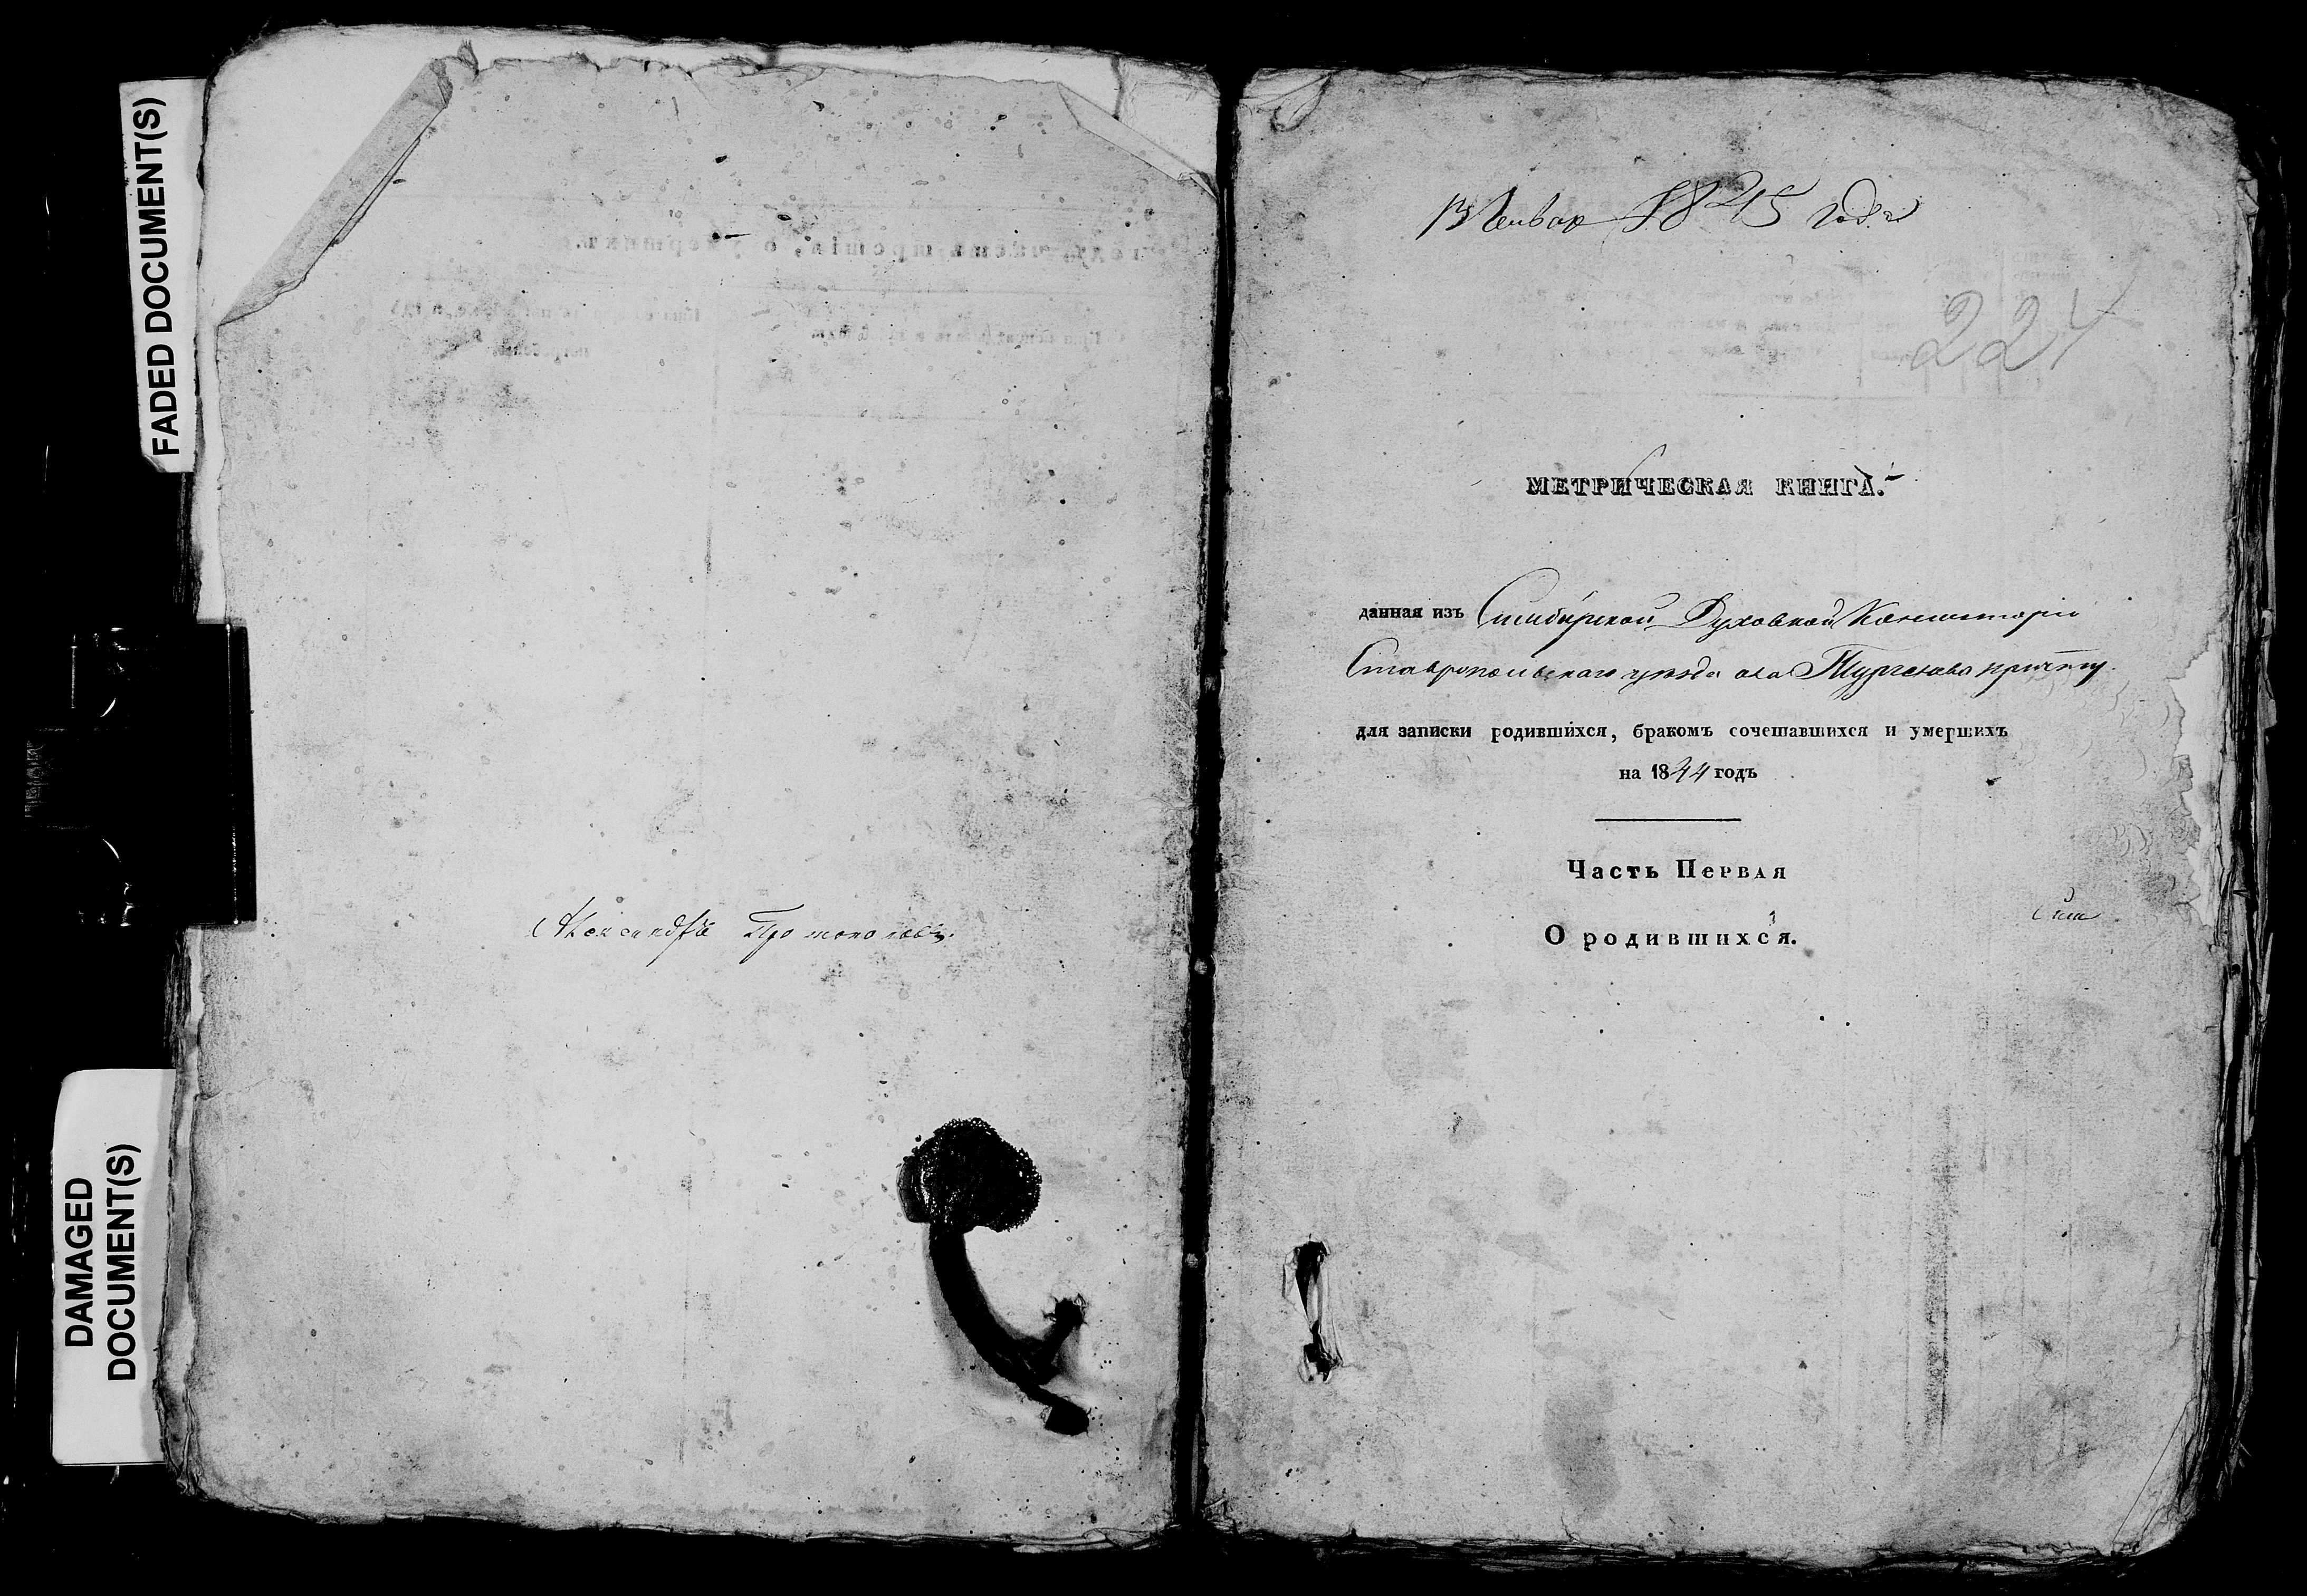 FADED DOCUMENT(S)
DAMAGED
DOCUMENT(S)
Александръ
13 Генвар 1845 года
224
МЕТРИЧЕСКАЯ КНИГА.
данная изъ Симбирской Духовной Консисторіи
Ставропольскаго уѣзда села Тургенева причту.
для записки родившихся, бракомъ сочетавшихся и умершихъ
на 1844 годъ
Часть Первая
О родившихся.